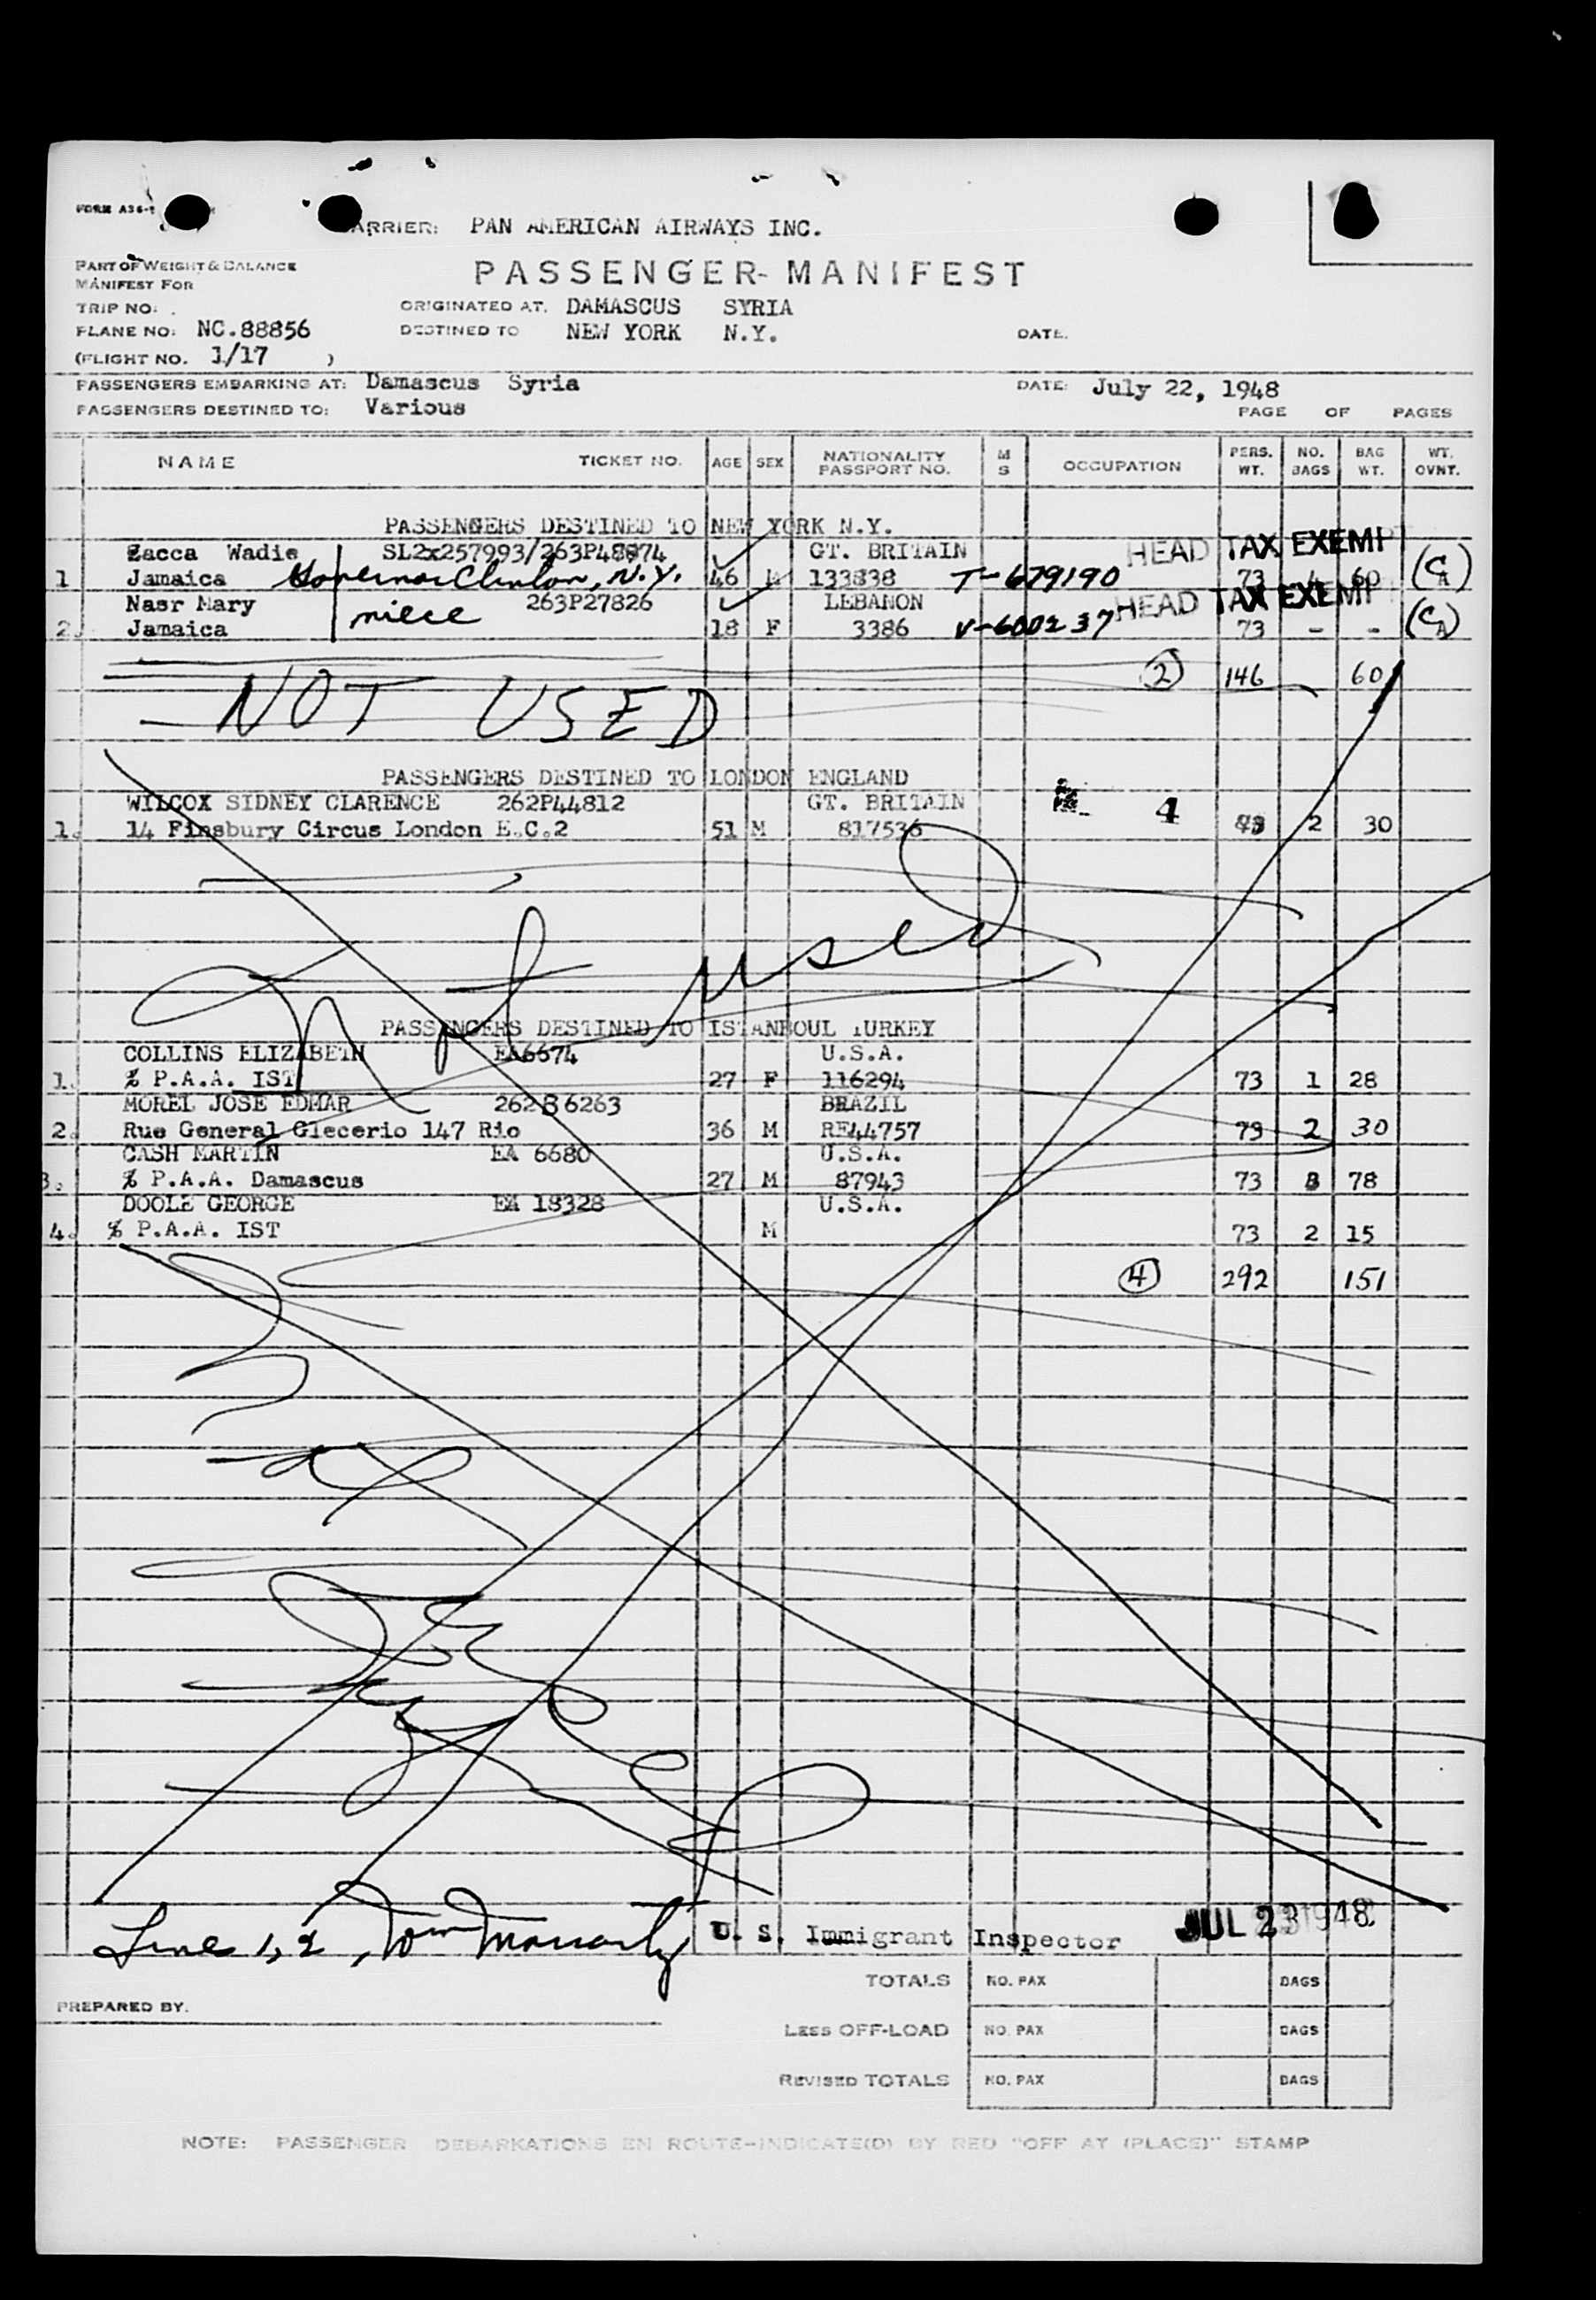 FORM A36-
CARRIER: PAN AMERICAN AIRWAYS INC.
PART OF WEIGHT & BALANCE
MANIFEST FOR
PASSENGER-MANIFEST
TRIP NO: ORIGINATED AT. DAMASCUS SYRIA
PLANE NO: NC.88856 DESTINED TO NEW YORK N.Y. DATE.
(FLIGHT NO. 1/17 )
PASSENGERS EMBARKING AT: Damascus Syria DATE: July 22, 1948
PASSENGERS DESTINED TO: Various PAGE OF PAGES
NAME TICKET NO. AGE SEX NATIONALITY PASSPORT NO. M S OCCUPATION PERS. WT. NO. BAGS BAG WT. WT. OVNT.
PASSENGERS DESTINED TO NEW YORK N.Y.
Zacca Wadie SL2x257993/263P48874 GT. BRITAIN HEAD TAX EXEMPT
1 Jamaica Governor Clinton, N.Y. 46 M 133838 T-679190 73 4 60 (CA)
Nasr Mary niece 263P27826 LEBANON HEAD TAX EXEMPT
2. Jamaica 18 F 3386 V-600237 73 - - (CA)
2 146 60
NOT USED
PASSENGERS DESTINED TO LONDON ENGLAND
WILCOX SIDNEY CLARENCE 262P44812 GT. BRITAIN 4
1. 14 Finsbury Circus London E.C.2 51 M 817536 73 2 30
Not used
PASSENGERS DESTINED TO ISTANBOUL TURKEY
COLLINS ELIZABETH EA6674 U.S.A.
1. % P.A.A. IST 27 F 116294 73 1 28
MOREL JOSE EDMAR 262B6263 BRAZIL
2. Rue General Glecerio 147 Rio 36 M RE44757 73 2 30
CASH MARTIN EA 6680 U.S.A.
3. % P.A.A. Damascus 27 M 87943 73 3 78
DOOLE GEORGE EA 18328 U.S.A.
4. % P.A.A. IST M 73 2 15
4 292 151
Line 1, 2 Wm Moriarty U. S. Immigrant Inspector JUL 23 1948
TOTALS NO. PAX BAGS
PREPARED BY.
LESS OFF-LOAD NO. PAX BAGS
REVISED TOTALS NO. PAX BAGS
NOTE: PASSENGER DEBARKATIONS EN ROUTE-INDICATE(D) BY RED "OFF AT (PLACE)" STAMP